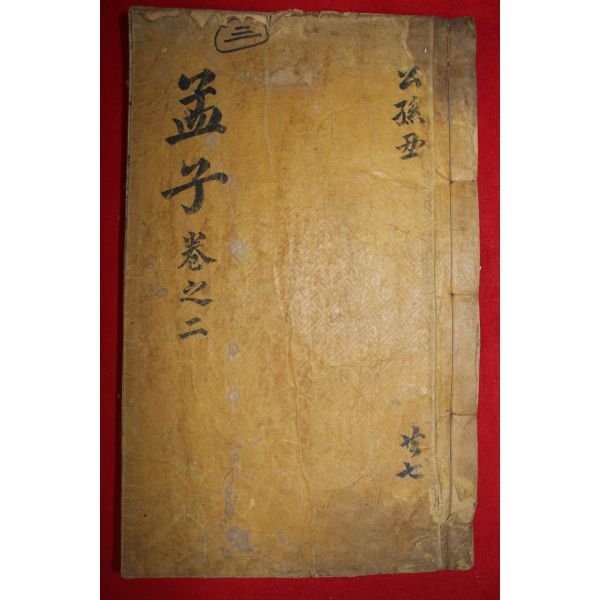 公孫丑
共七
三
孟子 卷之二